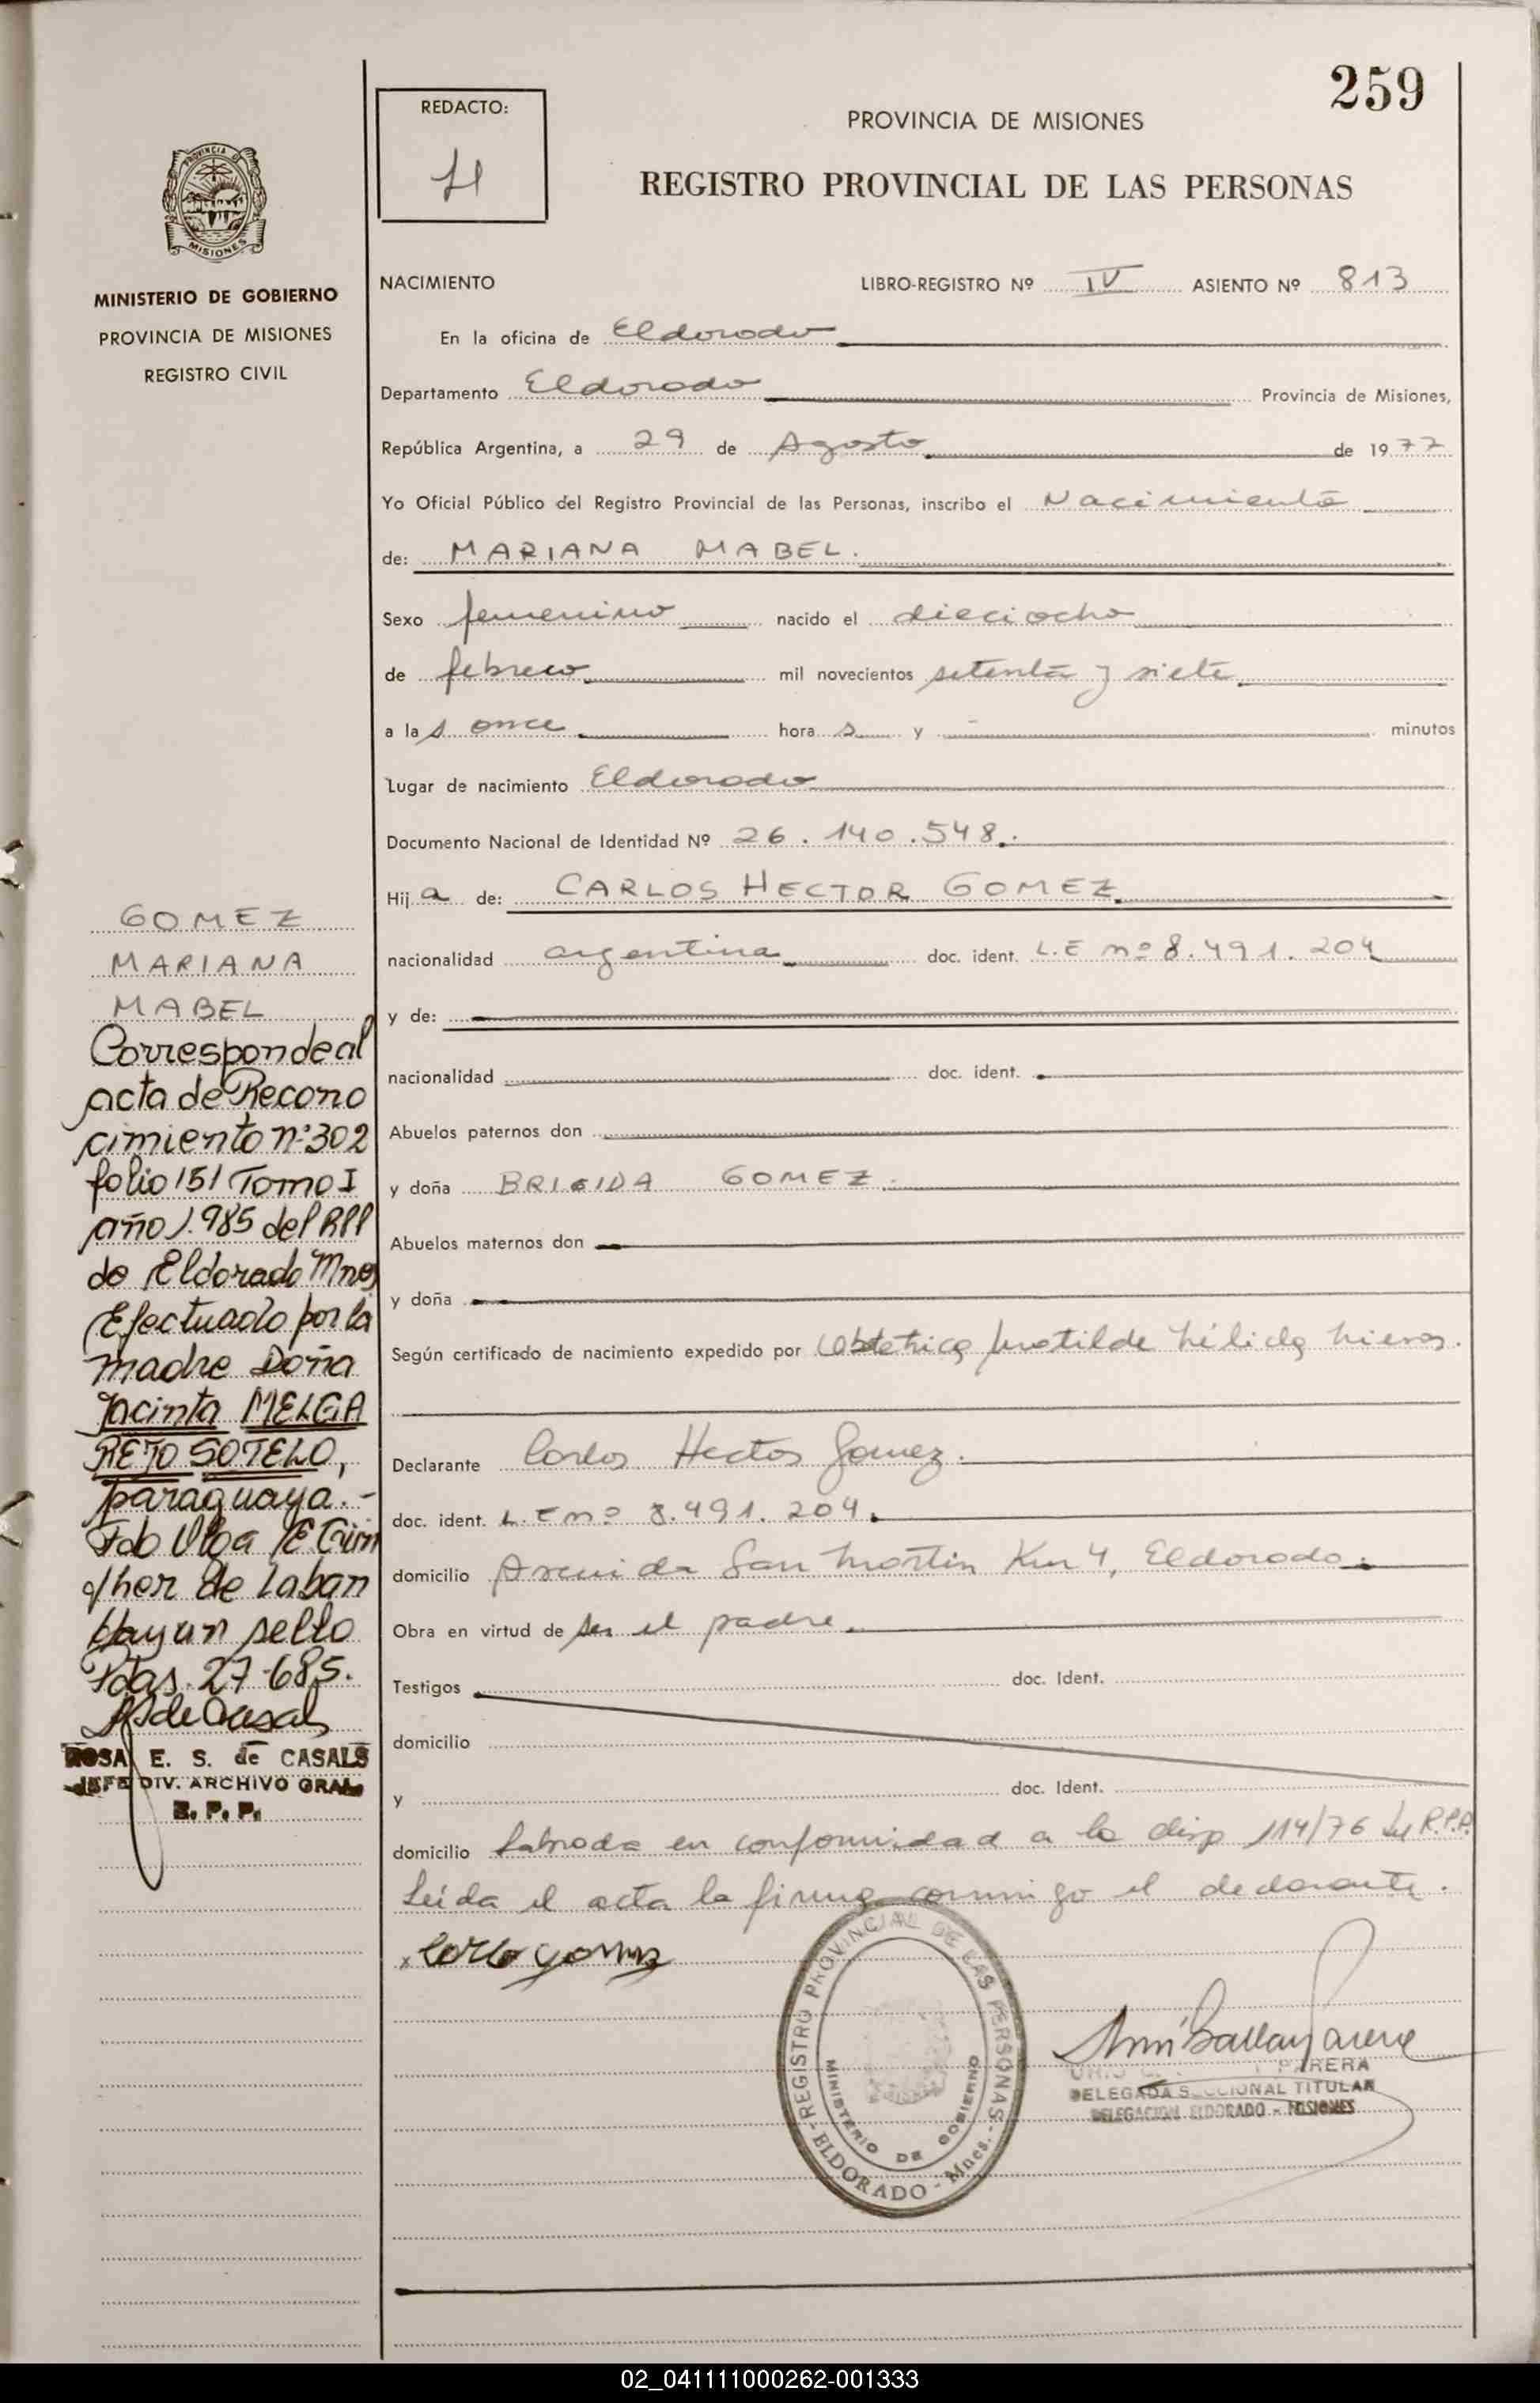 259
REDACTO:
PROVINCIA DE MISIONES
REGISTRO PROVINCIAL DE LAS PERSONAS
MISIONES
MINISTERIO DE GOBIERNO
PROVINCIA DE MISIONES
REGISTRO CIVIL
NACIMIENTO LIBRO-REGISTRO Nº IV ASIENTO Nº 813
En la oficina de Eldorado
Departamento Eldorado Provincia de Misiones,
República Argentina, a 29 de Agosto de 1977
Yo Oficial Público del Registro Provincial de las Personas, inscribo el Nacimiento
de: MARIANA MABEL.
Sexo femenino nacido el dieciocho
de febrero mil novecientos setenta y siete
a las once horas y - minutos
Lugar de nacimiento Eldorado
Documento Nacional de Identidad Nº 26.140.548.
Hija de: CARLOS HECTOR GOMEZ
nacionalidad argentina doc. ident. L.E nº 8.491.204
y de:
nacionalidad doc. ident.
Abuelos paternos don
y doña BRIGIDA GOMEZ.
Abuelos maternos don
y doña
Según certificado de nacimiento expedido por Obstetrica Matilde Nélida
Declarante Carlos Hector Gomez.
doc. ident. L.E nº 8.491.204.
domicilio Avenida San Martin Km 4, Eldorado.
Obra en virtud de ser el padre.
Testigos doc. Ident.
domicilio
y doc. Ident.
domicilio Labrada en conformidad a la disp 114/76 del R.P.P.
Leida el acta la firma conmigo el declarante.
x Carlos Gomez
GOMEZ
MARIANA
MABEL
Corresponde al
acta de Recono
cimiento nº 302
folio 151 Tomo I
año 1.985 del RPP
de Eldorado Mnes
Efectuado por la
madre Doña
Jacinta MELGA
REJO SOTELO,
paraguaya.-
Hay un sello
Pdas. 27-6-85.
ROSA E. S. de CASALS
JEFE DIV. ARCHIVO GRAL
R. P. P.
REGISTRO PROVINCIAL DE LAS PERSONAS
MINISTERIO DE GOBIERNO
ELDORADO - Mnes.
PARERA
DELEGADA SECCIONAL TITULAR
DELEGACION ELDORADO - MISIONES
02_041111000262-001333